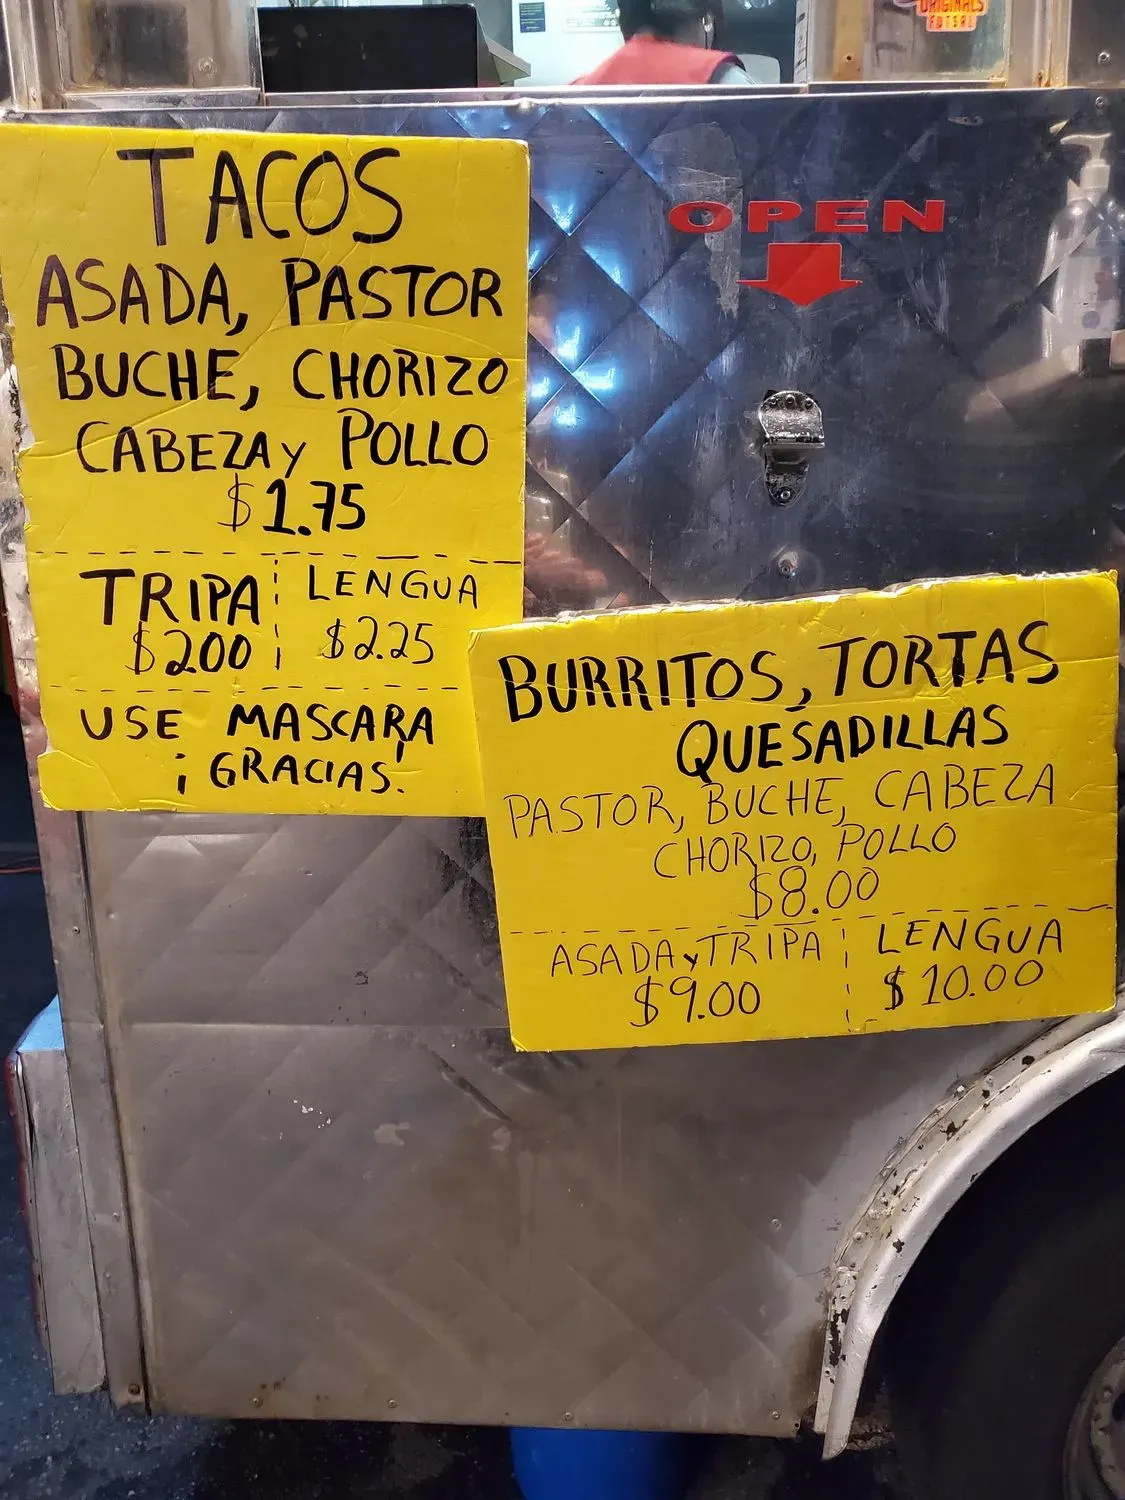 ORIGINALS
FUTSAL
TACOS
ASADA, PASTOR
BUCHE, CHORIZO
CABEZA y POLLO
$1.75
TRIPA
$2.00
LENGUA
$2.25
USE MASCARA,
¡GRACIAS.
OPEN
BURRITOS, TORTAS
QUESADILLAS
PASTOR, BUCHE, CABEZA
CHORIZO, POLLO
$8.00
ASADA y TRIPA
$9.00
LENGUA
$10.00